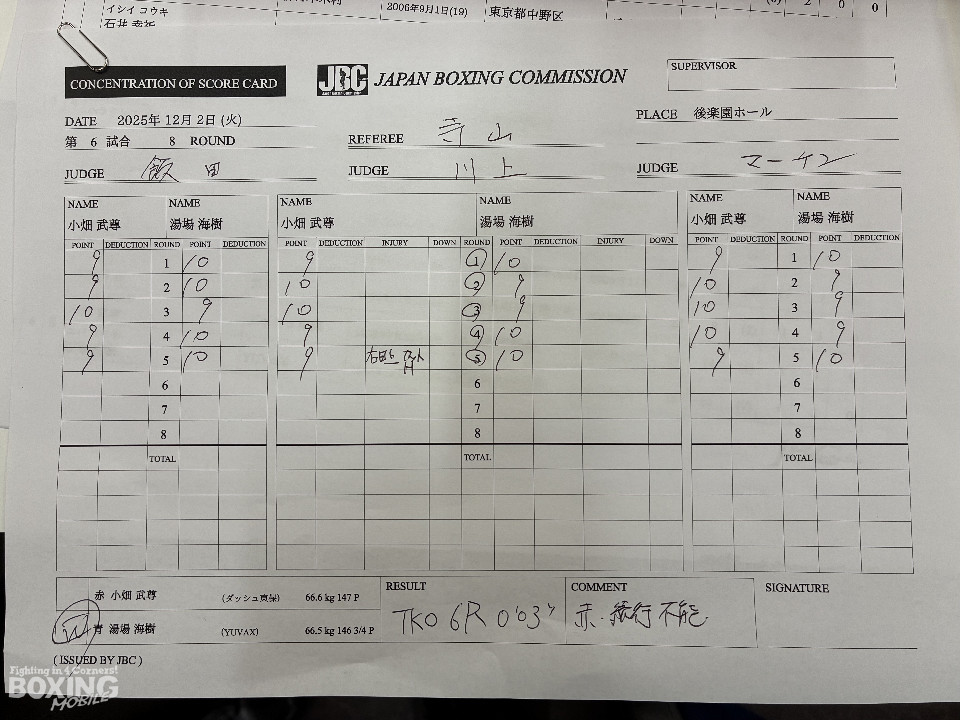 イシイ コウキ
2006年9月1日(19) 東京都中野区 2 0 0
CONCENTRATION OF SCORE CARD
JBC JAPAN BOXING COMMISSION
SUPERVISOR
DATE 2025年 12月 2日 (火)
PLACE 後楽園ホール
第 6 試合 8 ROUND
REFEREE 寺山
JUDGE 飯田
JUDGE 川上
JUDGE マーチン
NAME NAME NAME NAME NAME NAME
小畑 武尊 湯場 海樹 小畑 武尊 湯場 海樹 小畑 武尊 湯場 海樹
POINT DEDUCTION ROUND POINT DEDUCTION POINT DEDUCTION INJURY DOWN ROUND POINT DEDUCTION INJURY DOWN POINT DEDUCTION ROUND POINT DEDUCTION
9 1 10 9 1 10 9 1 10
9 2 10 10 2 9 10 2 9
10 3 9 10 3 9 10 3 9
9 4 10 9 4 10 10 4 9
9 5 10 9 5 10 9 5 10
6 6 6
7 7 7
8 8 8
TOTAL TOTAL TOTAL
赤 小畑 武尊 (ダッシュ東保) 66.6 kg 147 P
RESULT
TKO 6R 0'03"
COMMENT
赤・続行不能
SIGNATURE
W 青 湯場 海樹 (YUVAX) 66.5 kg 146 3/4 P
( ISSUED BY JBC )
Fighting in 4 Corners!
BOXING
MOBILE